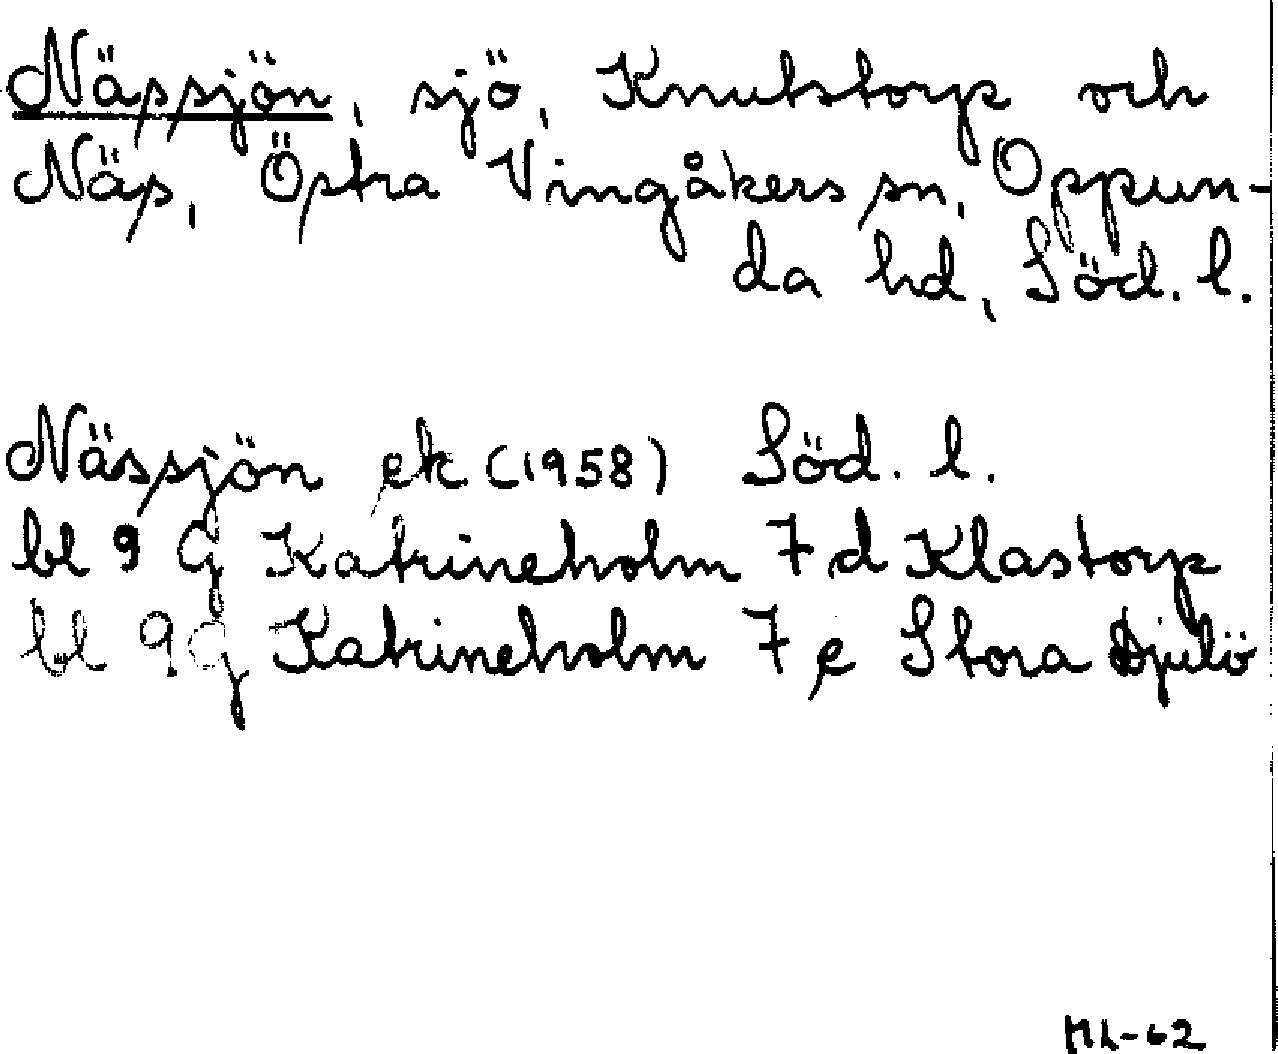 Nässjön, sjö, Knutstorp och
Näs, Östra Vingåkers sn, Oppun-
da hd, Söd. l.
Nässjön ek (1958) Söd. l.
bl 9 G Katrineholm 7 d Klastorp
bl 9 G Katrineholm 7 e Stora Djulö
ML-62